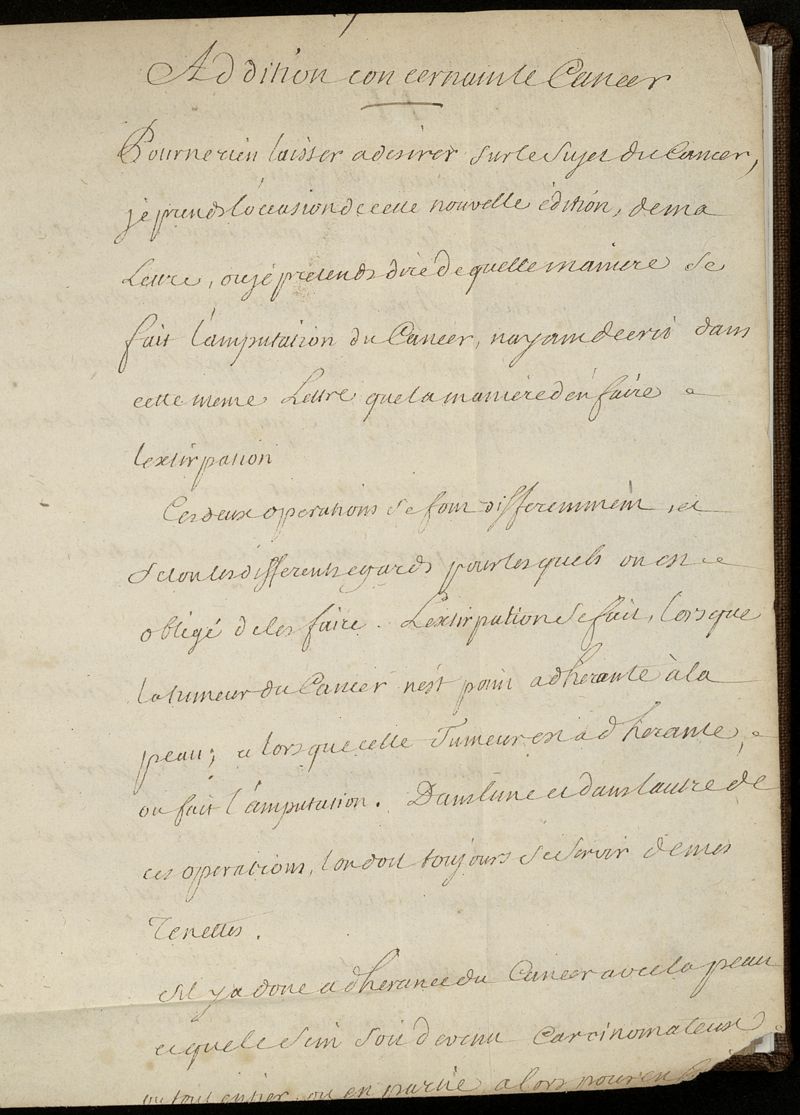 Addition concernant le Cancer
Pour ne rien laisser a desirer sur le sujet du Cancer,
je prends l'occasion de cette nouvelle édition, de ma
Lettre, ou je prétends dire de quelle maniere se
fait l'amputation du Cancer, nayant decrit dans
cette meme Lettre que la maniere d'en faire
lextirpation
Ces deux operations se font differemment, et
selon les differents egards pour lesquels on est
obligé de les faire. L'extirpation se fait, lorsque
la tumeur du Cancer n'est point adherante à la
peau; et lorsque cette Tumeur est adherante,
on fait l'amputation. Dans lune et dans lautre de
ces operations, lon doit toujours se servir de mes
Tenettes.
S'il y a donc adherance du Cancer avec la peau
et que le sein soit devenu Carcinomateux
ou tout entier, ou en partie, alors pour en